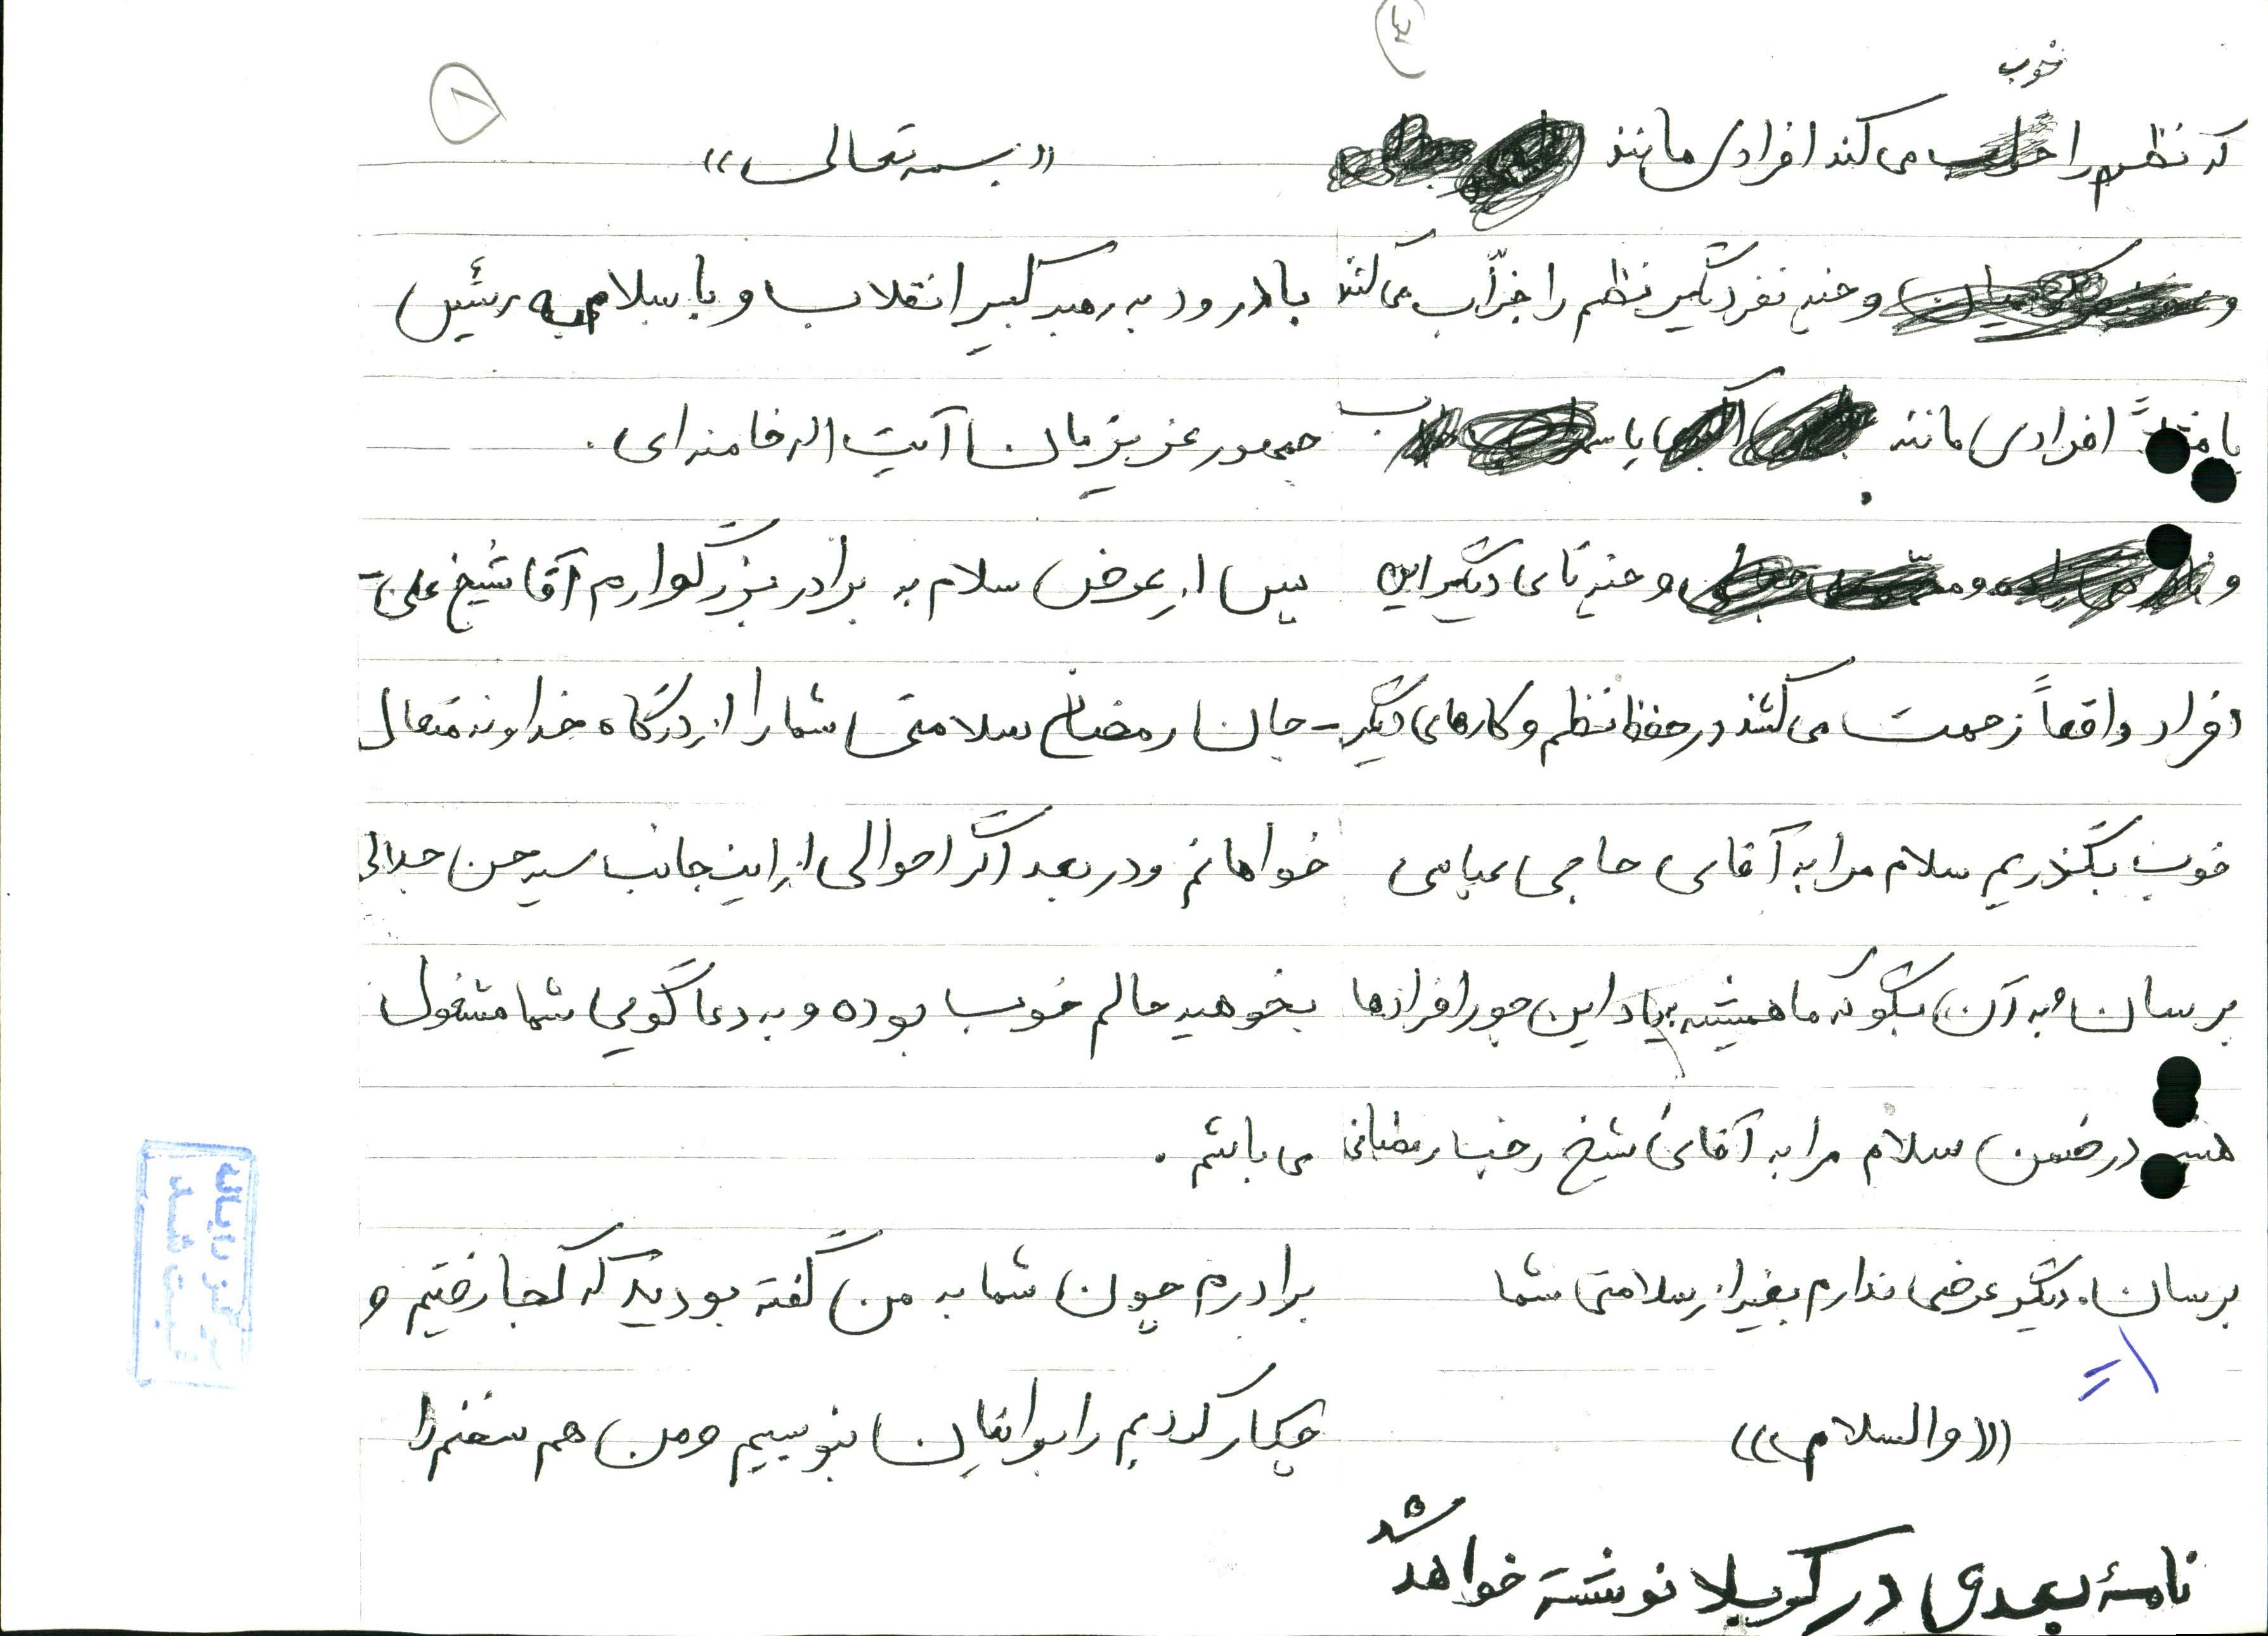 ۳
خوب
که نظم را می‌کند افرادی مانند
و و چند نفر دیگر نظم را خراب می‌کنند
یا مثلاً افرادی مانند یا
و و و چند تای دیگر این
افراد واقعاً زحمت می‌کشند در حفظ نظم و کارهای دیگر
خوب بگذریم سلام مرا به آقای حاجی عباسی
برسان و به آن بگو که ما همیشه بیاد این جور افرادها
در ضمن سلام مرا به آقای شیخ رمضانی
برسان. دیگر عرضی ندارم بغیر از سلامتی شما
(((والسلام)))
نامهٔ بعدی در کربلا نوشته خواهد شد
۱
((بسمه تعالی))
با درود به رهبر کبیر انقلاب و با سلام به رئیس
جمهور عزیزمان آیت اله خامنه‌ای.
پس از عرض سلام به برادر بزرگوارم آقا شیخ علی -
- جان رمضانی سلامتی شما را از درگاه خداوند متعال
خواهانم و در بعد اگر احوالی از اینجانب سید حسن جلالی
بخوهید حالم خوب بوده و به دعا گویی شما مشغول
می باشم.
برادرم چون شما به من گفته بودید که کجا رفتیم و
چکار کردیم را برایتان بنویسم و من هم سخنم را
مرکز رایانه
ثبت شد